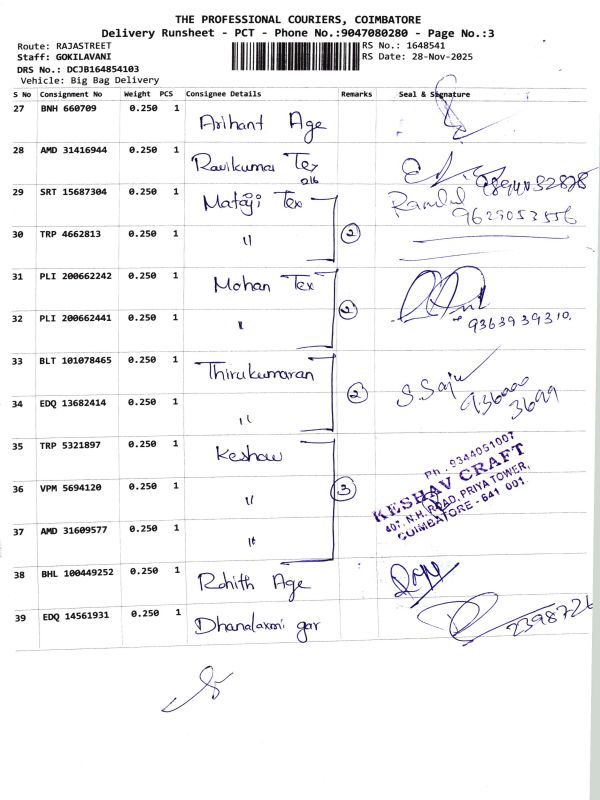 THE PROFESSIONAL COURIERS, COIMBATORE
Delivery Runsheet - PCT - Phone No.:9047080280 - Page No.:3
Route: RAJASTREET
RS No.: 1648541
Staff: GOKILAVANI
RS Date: 28-Nov-2025
DRS No.: DCJB164854103
Vehicle: Big Bag Delivery
S No Consignment No Weight PCS Consignee Details Remarks Seal & Signature
27 BNH 660709 0.250 1 Arihant Age
28 AMD 31416944 0.250 1 Ravikumar Tex
29 SRT 15687304 0.250 1 Mataji Tex
9629053556
30 TRP 4662813 0.250 1 " 2
31 PLI 200662242 0.250 1 Mohan Tex 2
32 PLI 200662441 0.250 1 " 9363939310
33 BLT 101078465 0.250 1 Thirukumaran 2 S. Saju
34 EDQ 13682414 0.250 1 "
35 TRP 5321897 0.250 1 Keshav
36 VPM 5694120 0.250 1 " 3
37 AMD 31609577 0.250 1 "
Ph : 9344051007
KESHAV CRAFT
407, N.H. ROAD, PRIYA TOWER,
COIMBATORE - 641 001
38 BHL 100449252 0.250 1 Rohith Age
39 EDQ 14561931 0.250 1 Dhanalaxmi gar 2398726